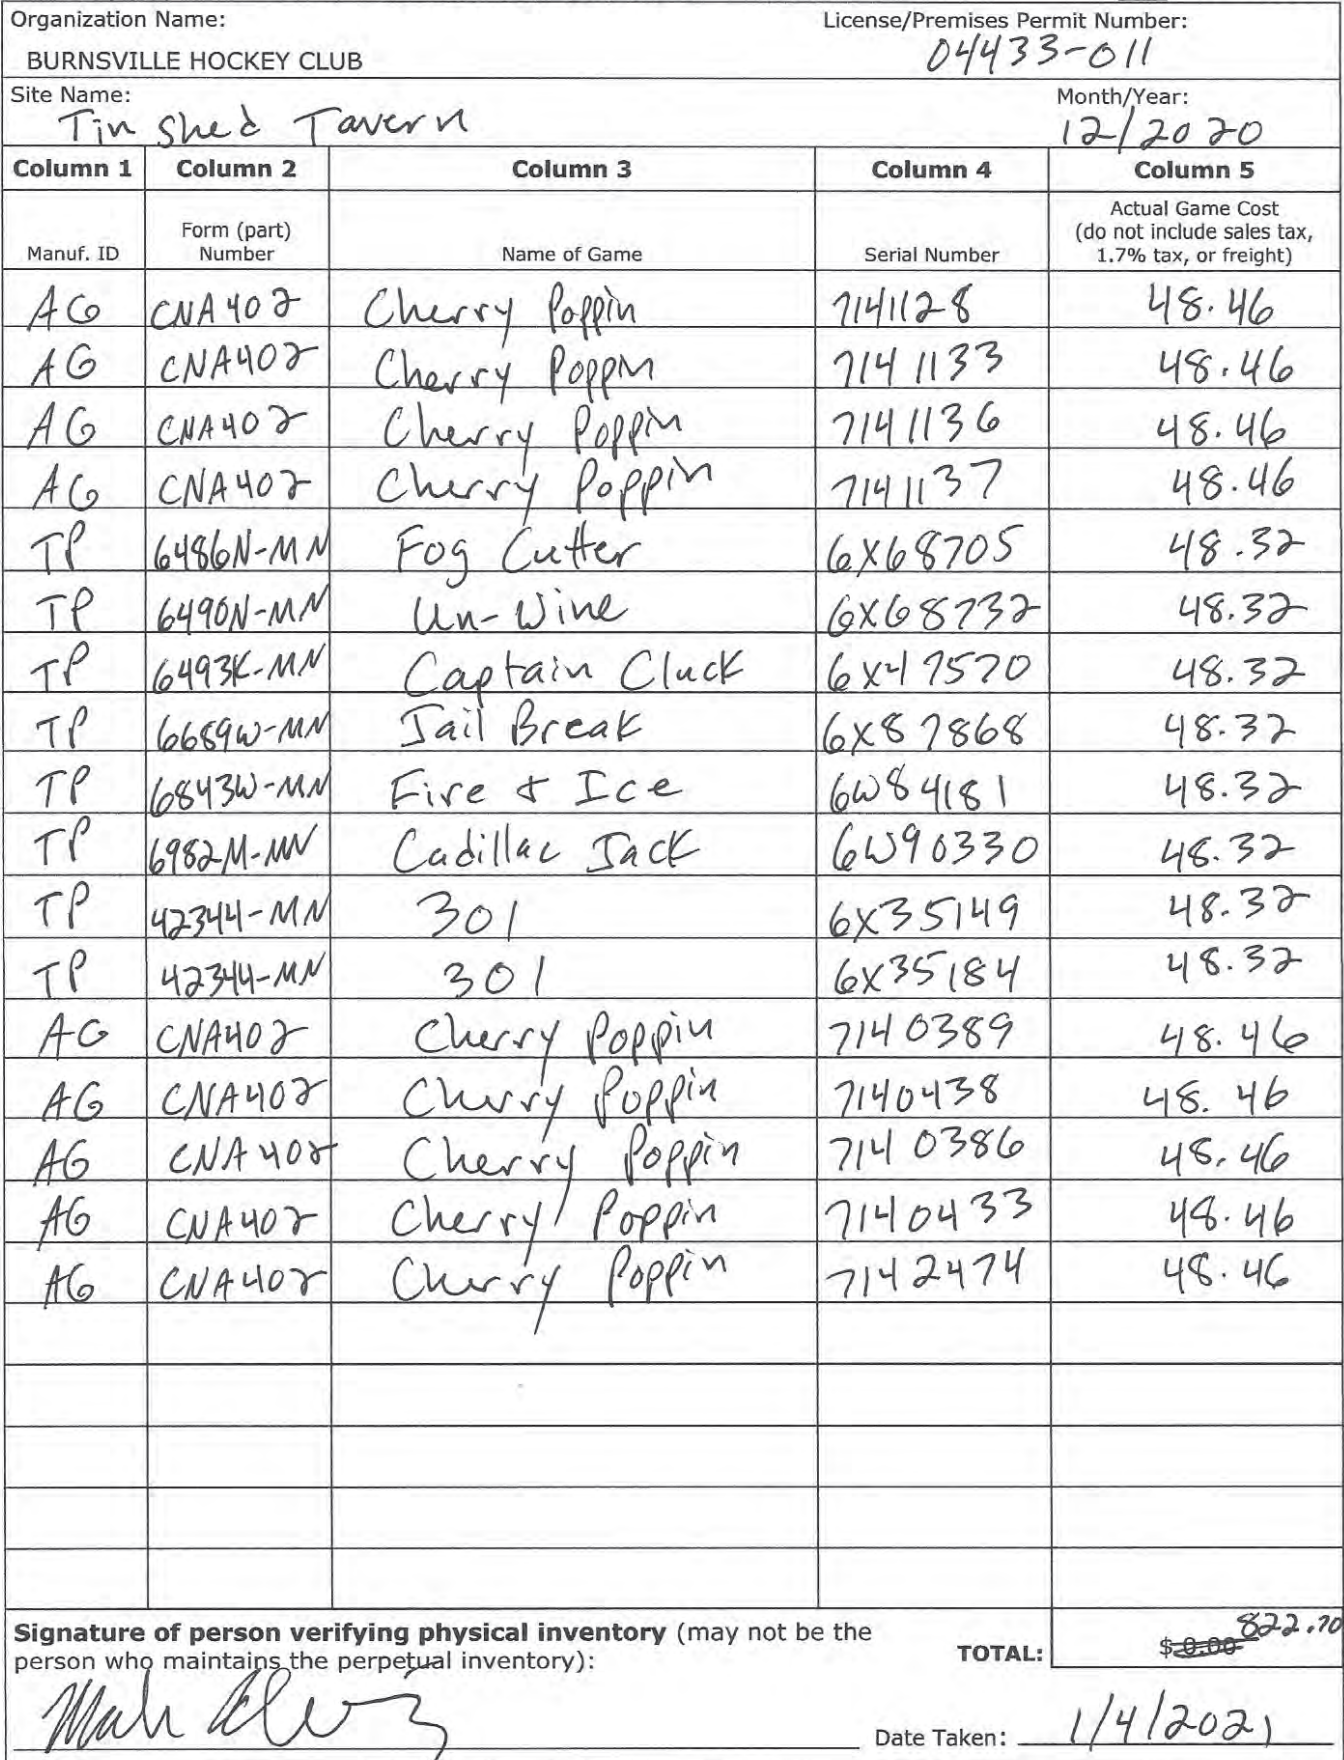 Organization Name: License/Premises Permit Number:
BURNSVILLE HOCKEY CLUB 04433-011
Site Name: Month/Year:
Tin Shed Tavern 12/2020
Column 1 Column 2 Column 3 Column 4 Column 5
Manuf. ID Form (part) Number Name of Game Serial Number Actual Game Cost (do not include sales tax, 1.7% tax, or freight)
AG CNA402 Cherry Poppin 7141128 48.46
AG CNA402 Cherry Poppin 7141133 48.46
AG CNA402 Cherry Poppin 7141136 48.46
AG CNA402 Cherry Poppin 7141137 48.46
TP 6486N-MN Fog Cutter 6X68705 48.32
TP 6490N-MN Un-Wine 6X68732 48.32
TP 6493K-MN Captain Cluck 6X47570 48.32
TP 6689W-MN Jail Break 6X87868 48.32
TP 6843W-MN Fire & Ice 6W84181 48.32
TP 6982M-MN Cadillac Jack 6W90330 48.32
TP 42344-MN 301 6X35149 48.32
TP 42344-MN 301 6X35184 48.32
AG CNA402 Cherry Poppin 7140389 48.46
AG CNA402 Cherry Poppin 7140438 48.46
AG CNA402 Cherry Poppin 7140386 48.46
AG CNA402 Cherry Poppin 7140433 48.46
AG CNA402 Cherry Poppin 7142474 48.46
Signature of person verifying physical inventory (may not be the
person who maintains the perpetual inventory):
TOTAL: $ 0.00 822.70
Date Taken: 1/4/2021